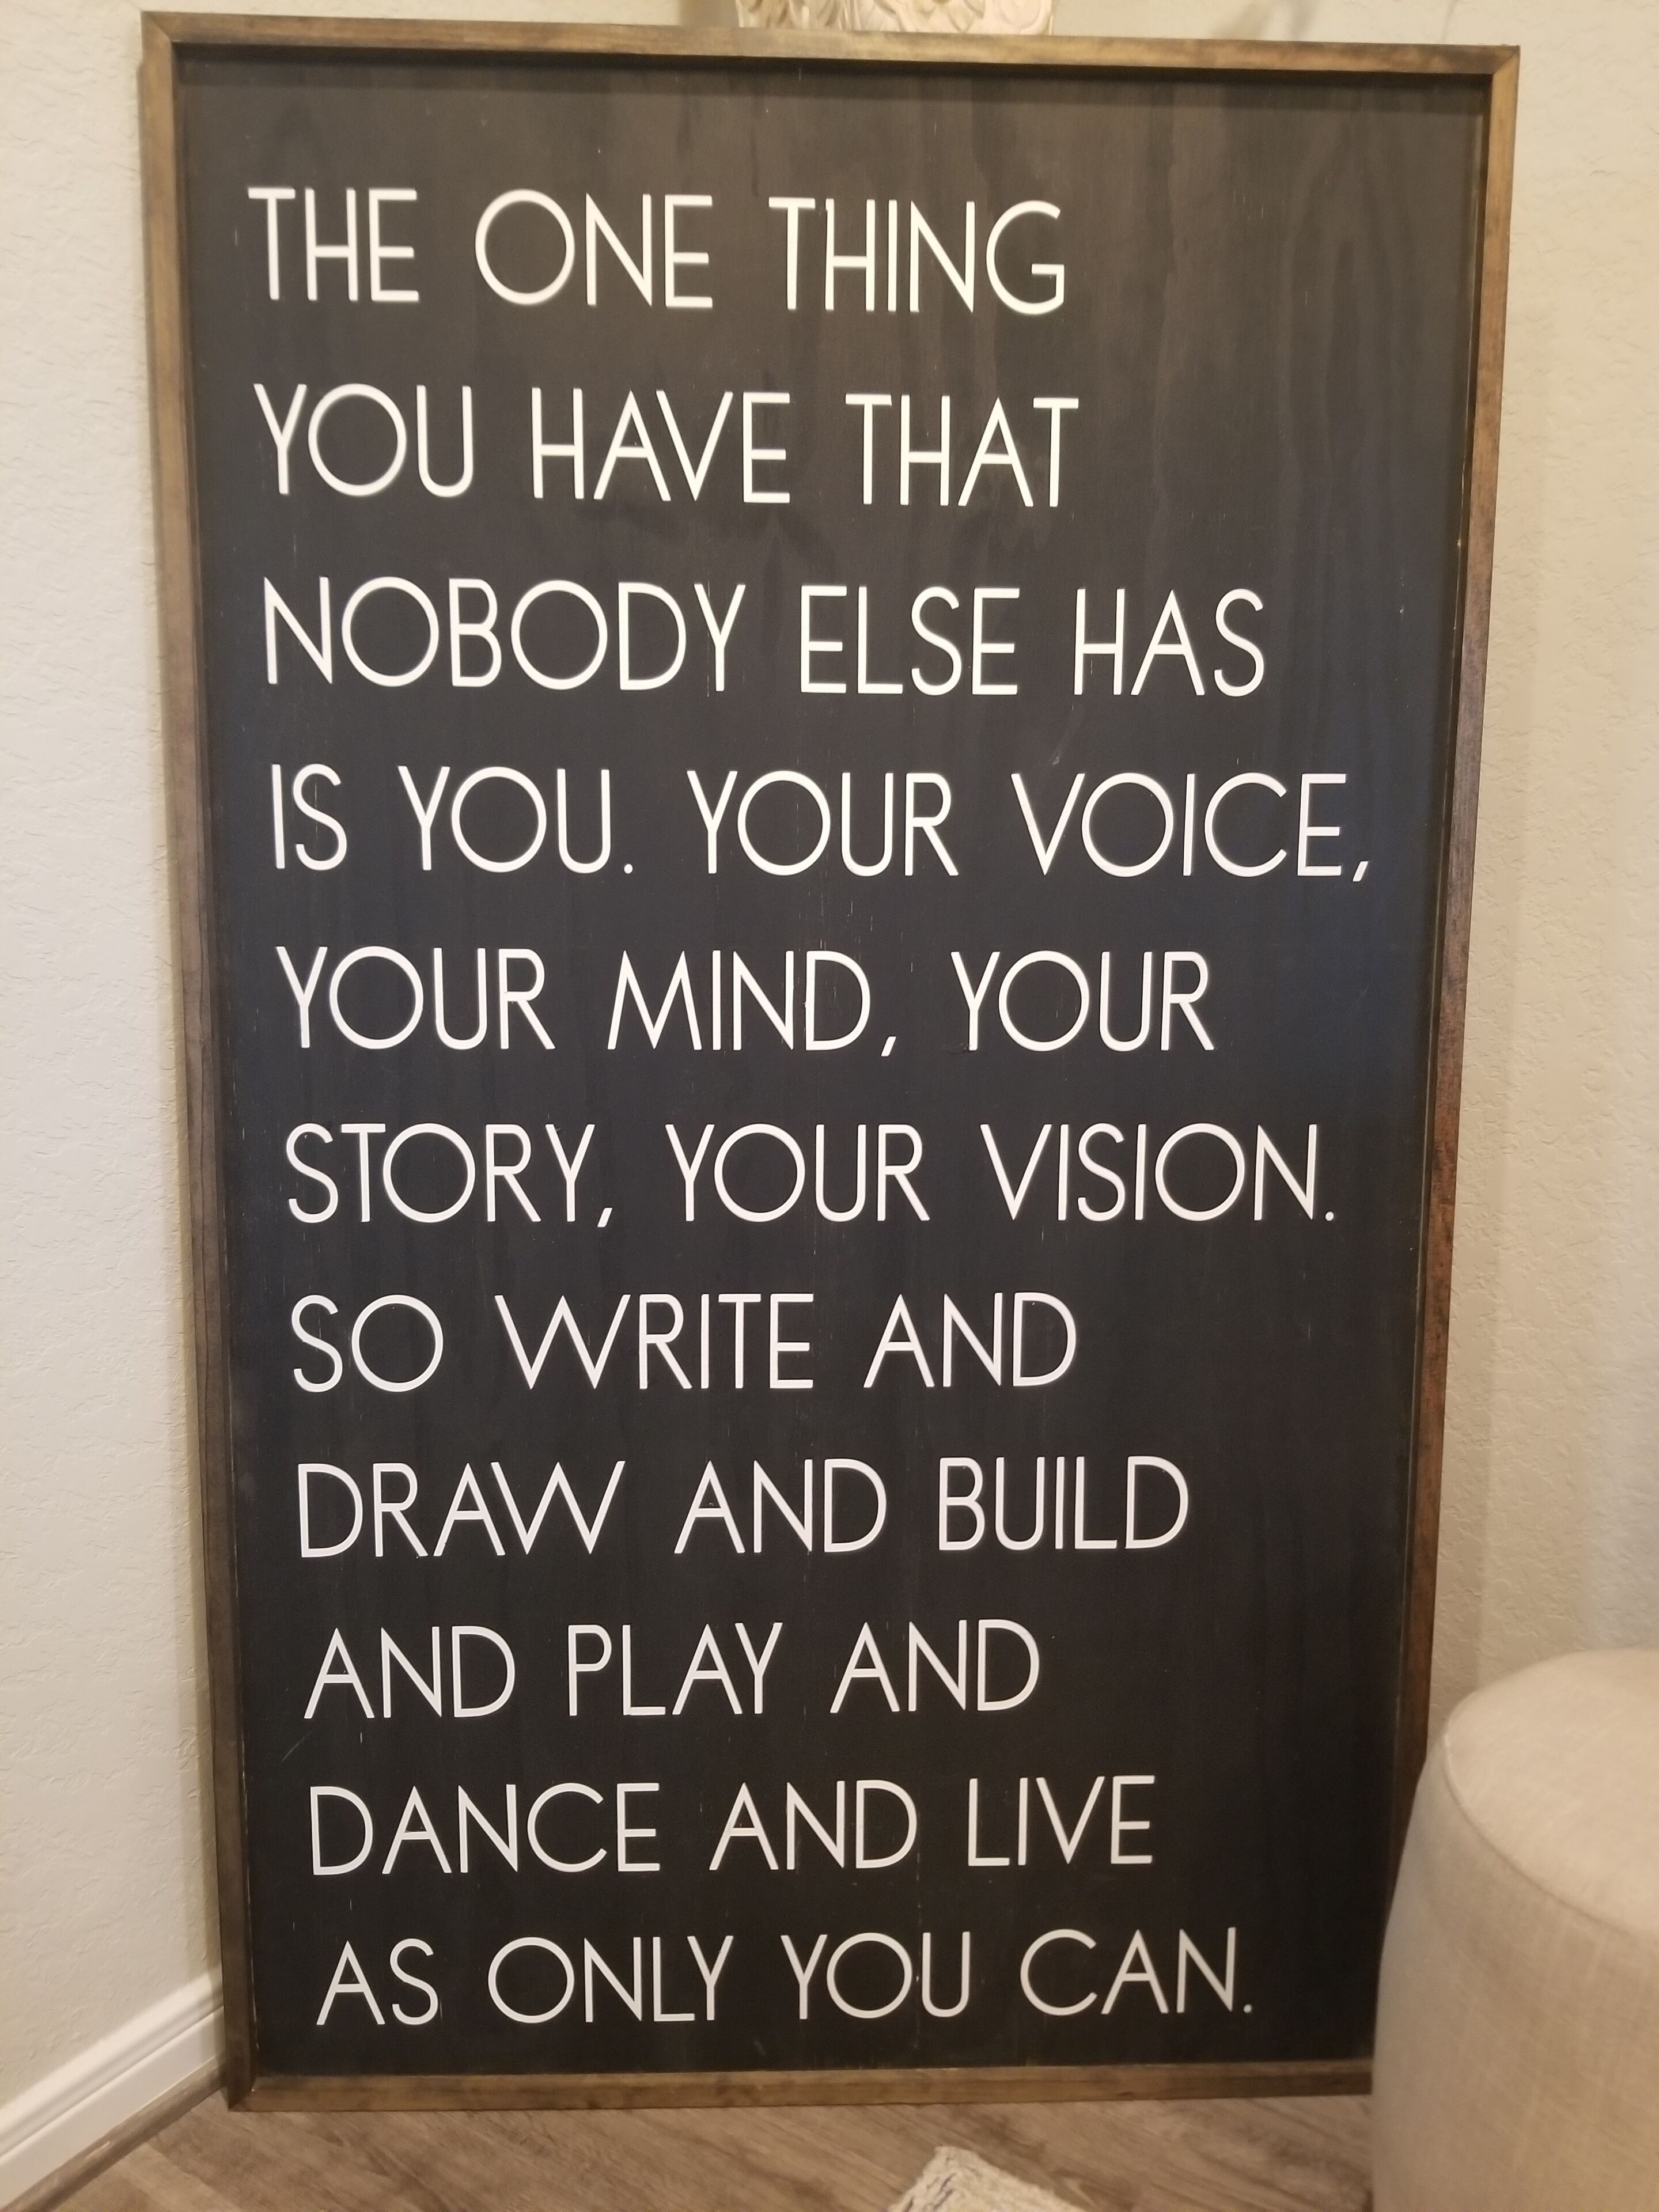 THE ONE THING
YOU HAVE THAT
NOBODY ELSE HAS
IS YOU. YOUR VOICE,
YOUR MIND, YOUR
STORY, YOUR VISION.
SO WRITE AND
DRAW AND BUILD
AND PLAY AND
DANCE AND LIVE
AS ONLY YOU CAN.